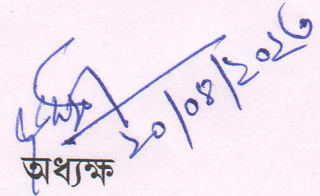 ২০/০৪/২০২৩
অধ্যক্ষ